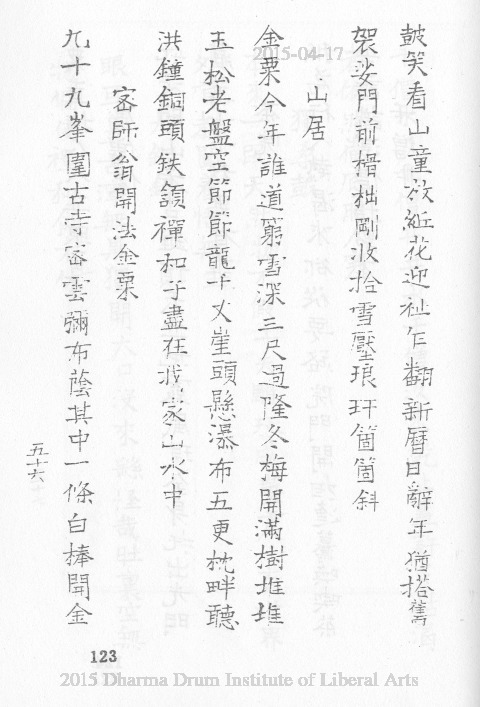 皷笑看山童放紙花迎祉乍翻新曆日辭年猶搭舊
袈裟門前榾柮剛收拾雪壓琅玕箇箇斜
山居
金粟今年誰道窮雪深三尺過隆冬梅開滿樹堆堆
玉松老盤空節節龍千丈崖頭懸瀑布五更枕畔聽
洪鐘銅頭鉄額禪和子盡在我家山水中
密師翁開法金粟
九十九峯圍古寺密雲彌布蔭其中一條白棒開金
五十六
123
2015-04-17
2015 Dharma Drum Institute of Liberal Arts